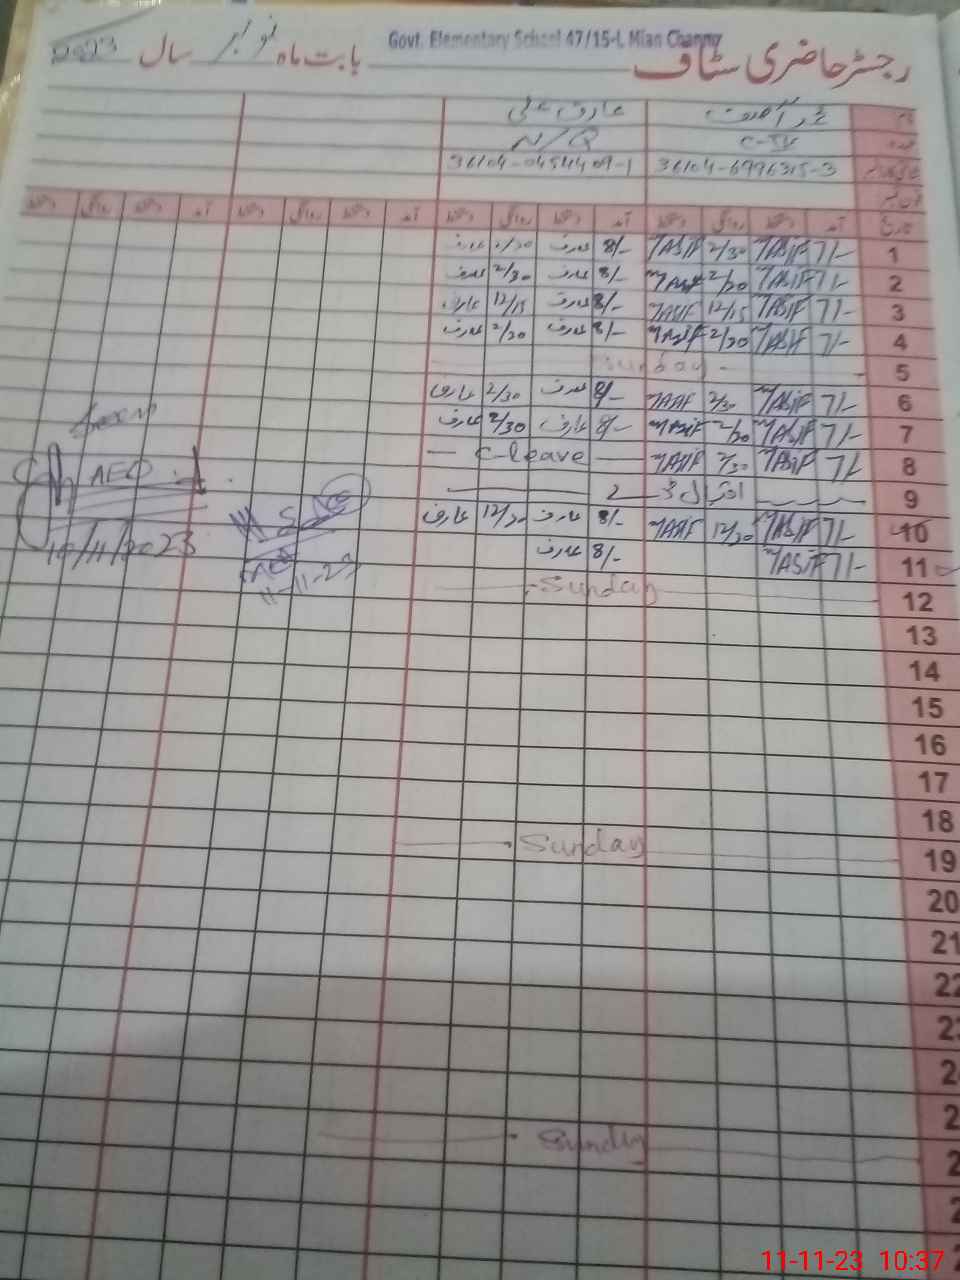 Govt. Elementary School 47/15-L Mian Channu
رجسٹر حاضری سٹاف بابت ماہ نومبر سال 2023
نام محمد آصف عارف علی
عہدہ C-IV N/Q
36104-6996315-3 36104-0454409-1
تاریخ آمد دستخط روانگی دستخط آمد دستخط روانگی دستخط آمد دستخط روانگی دستخط آمد دستخط روانگی دستخط
1 7/- MASIF 2/30 MASIF 8/- عارف 2/30 عارف
2 7/- MASIF 2/30 MASIF 8/- عارف 2/30 عارف
3 7/- MASIF 12/15 MASIF 8/- عارف 12/15 عارف
4 7/- MASIF 2/30 MASIF 8/- عارف 2/30 عارف
5 Sunday
6 7/- MASIF 2/30 MASIF 8/- عارف 2/30 عارف
7 7/- MASIF 2/30 MASIF 8/- عارف 2/30 عارف
8 7/- MASIF 2/30 MASIF C-leave
9 اقبال ڈے
10 7/- MASIF 12/30 MASIF 8/- عارف 12/30 عارف
11 7/- MASIF 8/- عارف
12 Sunday
13
14
15
16
17
18
19 Sunday
20
21
22
Sunday
AEO
10/11/2023
11-11-23
11-11-23 10:37